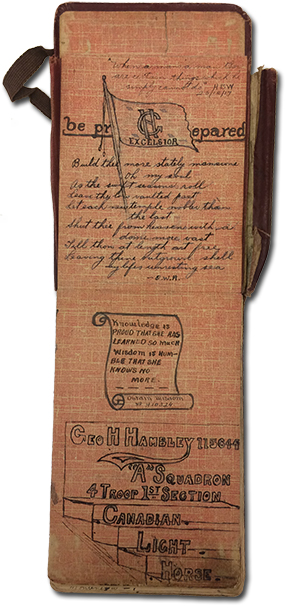 "When a man a man there
are certain things which he
simply cannot do"
be pr epared
EXCELSIOR
Build thee more stately mansions
Oh my soul
As the swift seasons roll
Leave thy low vaulted past
Let each new temple nobler than
the last
Shut thee from heaven with a
dome more vast
Till thou at length art free
Leaving thine outgrown shell
by lifes unresting sea
Knowledge is
PROUD THAT SHE HAS
LEARNED SO MUCH
WISDOM IS HUM-
BLE THAT SHE
KNOWS NO
MORE.
GEO H HAMBLEY
"A" SQUADRON
4 TROOP 1ST SECTION
CANADIAN
LIGHT
HORSE.